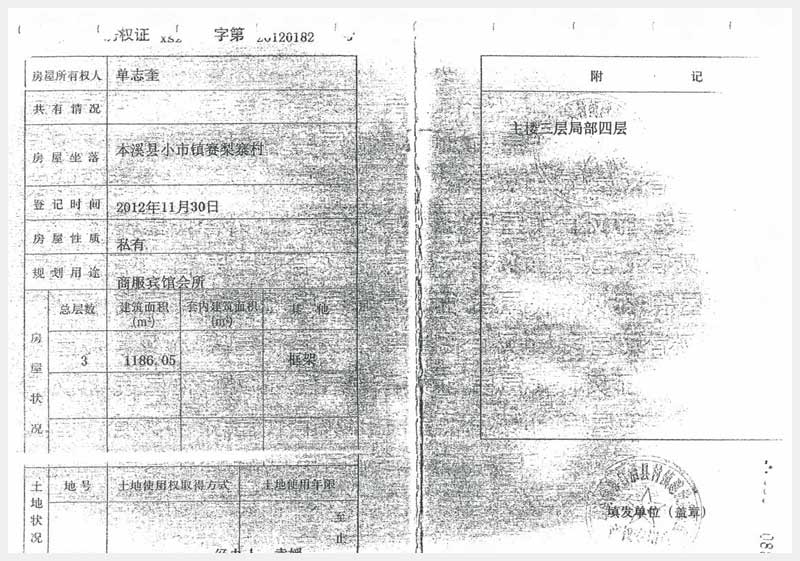 房权证 xsz 字第 20120182
房屋所有权人 单志奎
共有情况
房屋坐落 本溪县小市镇赛梨寨村
登记时间 2012年11月30日
房屋性质 私有
规划用途 商服宾馆会所
房屋状况 总层数 建筑面积(m²) 套内建筑面积(m²) 其他
3 1186.05 框架
土地状况 地号 土地使用权取得方式 土地使用年限
至
止
附 记
主楼三层局部四层
填发单位(盖章)